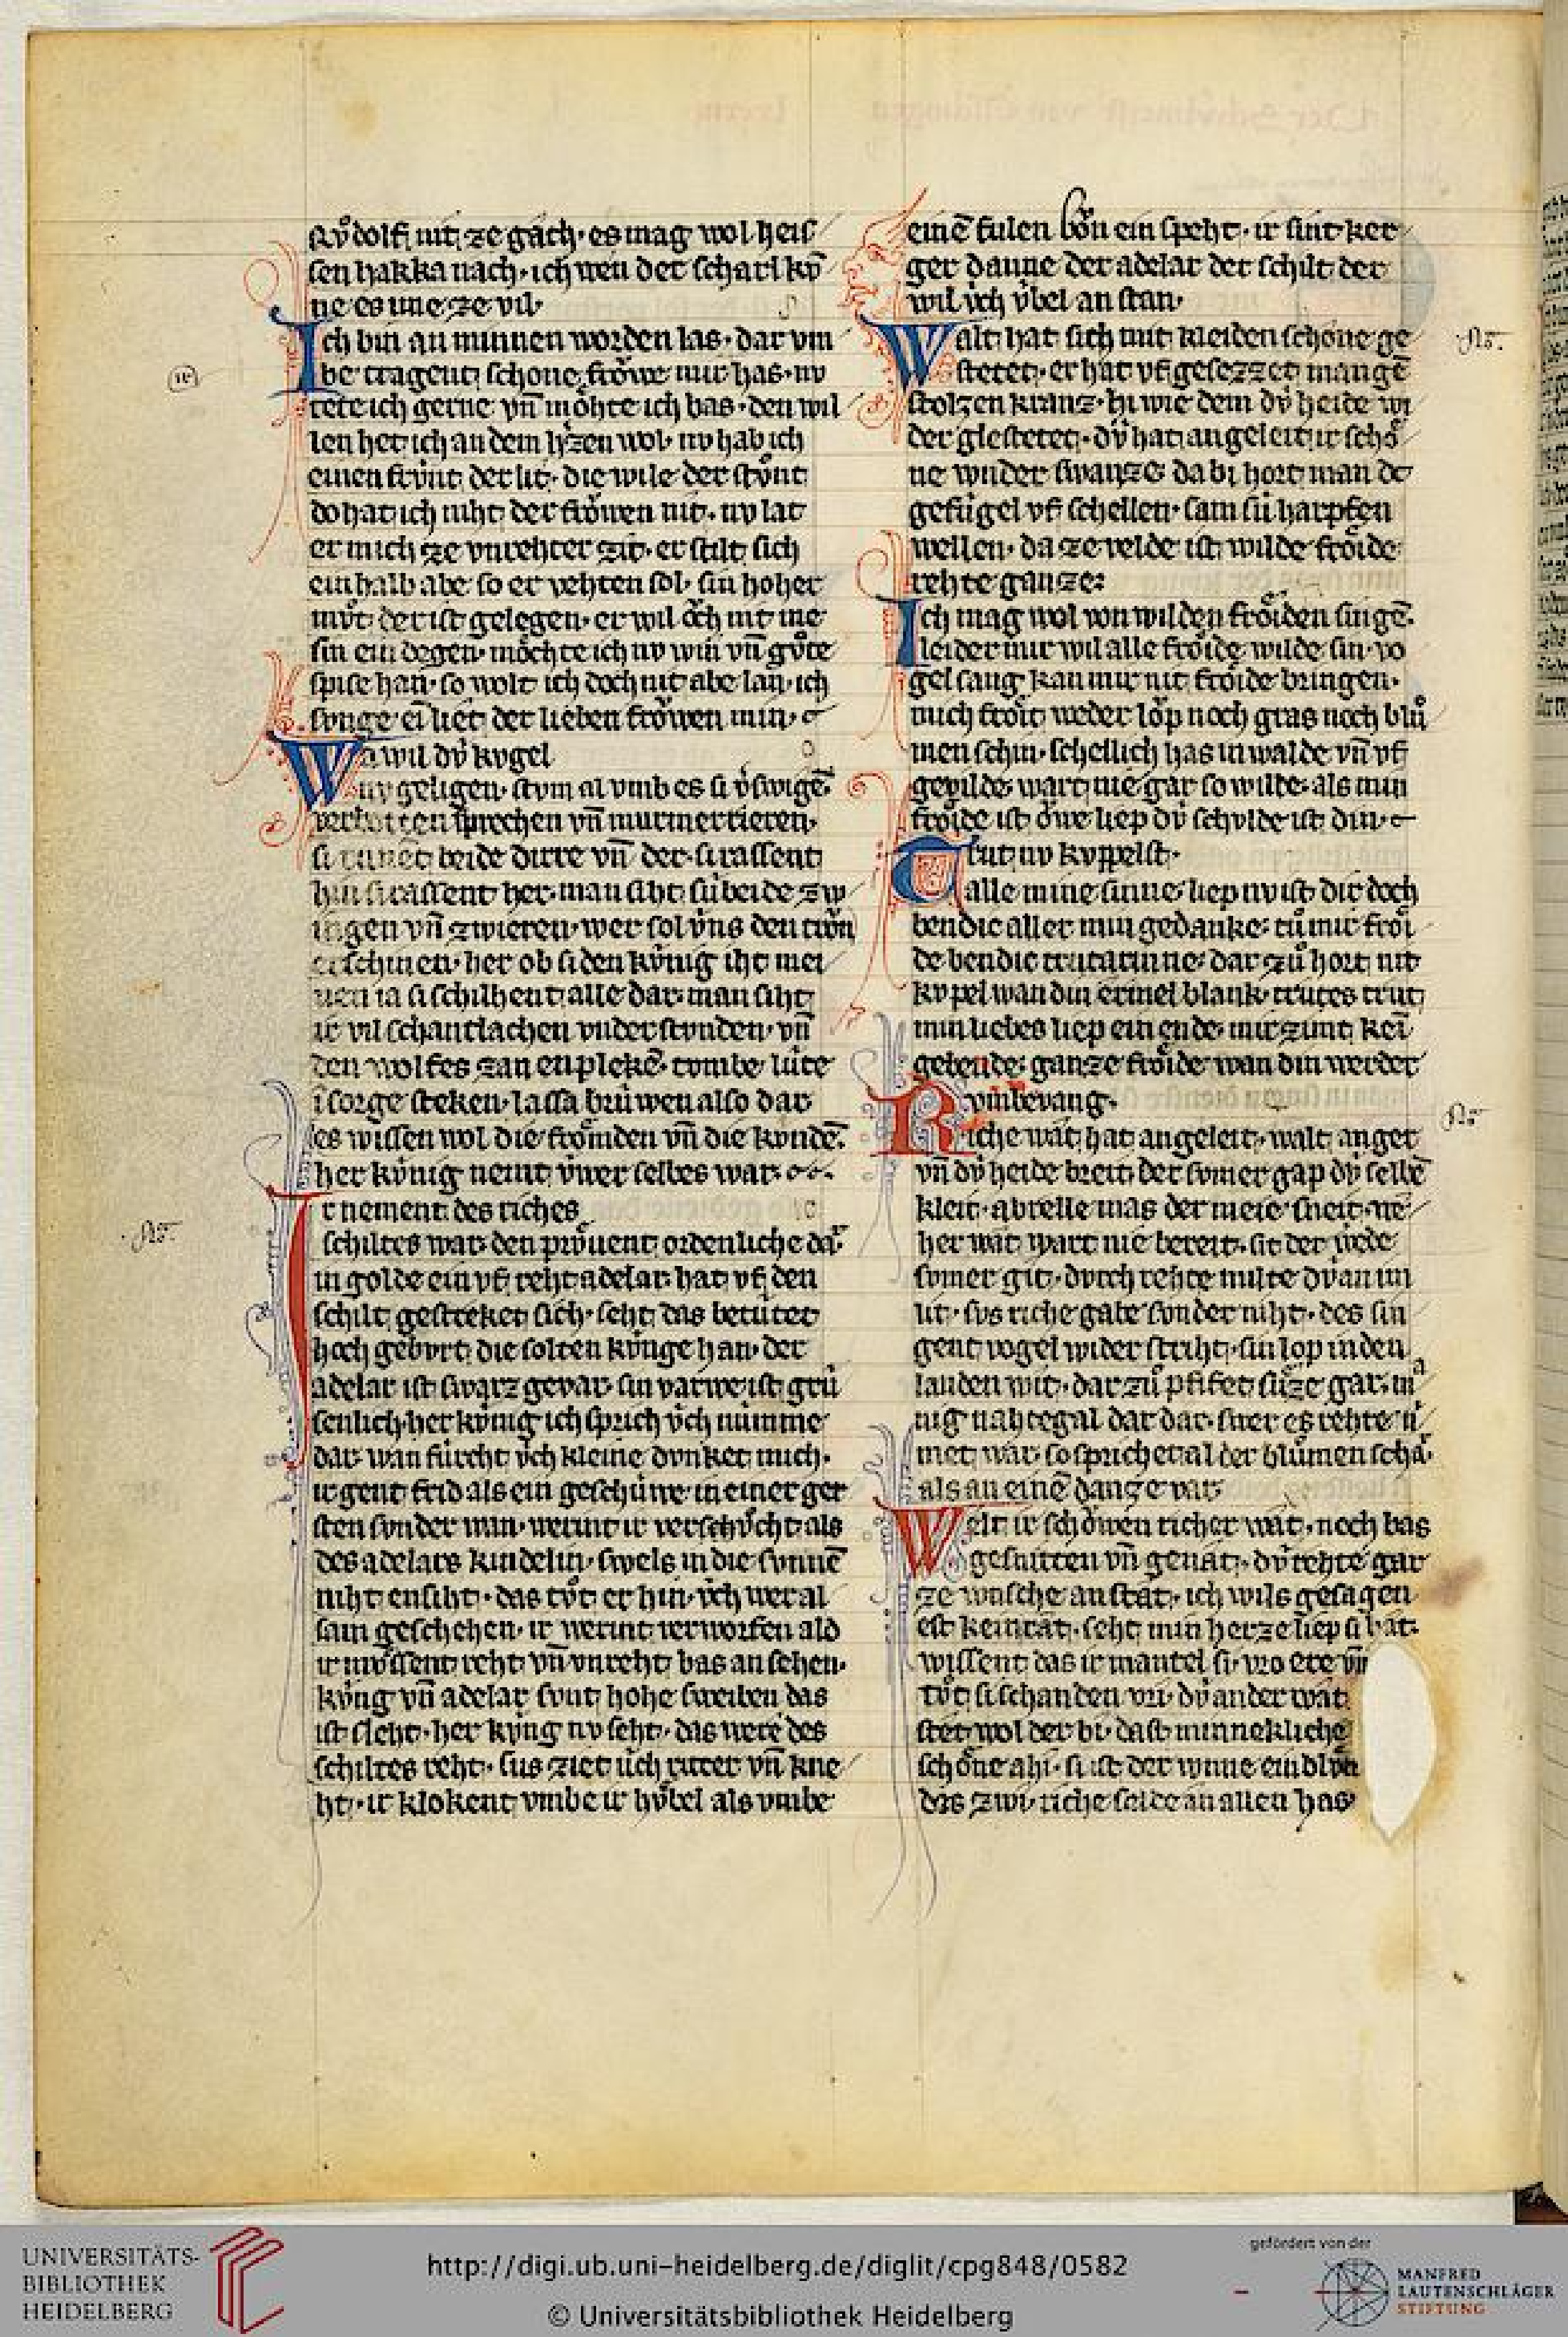 Rvͦdolf nit ze gach· es mag wol heis
sen hakka nach· ich wen der scharl kv̂
ne es ime ze vil·
Ich bin an minnen worden las· dar vm
be tragent schone frowe mir has· nv
tete ich gerne vn̄ mohte ich bas· den wil
len het ich an dem lyzen wol· nv hab ich
einen frv́nt der lit· die wile der stoͮnt
do hat ich niht der froͮwen nit· nv lat
er mich ze vnrehter zit· er stilt sich
einhalb abe so er vehten sol· sin hoher
mvͦt der ist gelegen· er wil oͮch nit me
sin ein degen· moͤchte ich nv win vn̄ gvͦte
spise han· so wolt ich doch nit abe lan· ich
svnge ei̅ liet der lieben froͮwen min·
Wa wil dv́ kvgel
nv geligen· stvm al vmb es si v̓swige̅
verbotten sprechen vn̄ murmertieren·
si runēt beide dirre vn̄ der· si rassent
hin si rassent her· man siht sú beide zw
ingen vn̄ zwieren· wer sol v́ns den troͮn
erschinen· her ob si den kv́nig iht mei
nen ia si schilhent alle dar· man siht
ir vil schantlachen vnder stvnden· vn̄
den wolfes zan enplekē· tombe lúte
ī sorge steken· lassa brúwen also dar
es wissen wol die froͤmden vn̄ die kvndē·
her kv́nig nemt v́wer selbes war·
Ir nement des riches
schiltes war· den prouent ordenliche dar
in golde ein vf reht adelar· hat vf den
schilt gestreket sich· seht das betútet
hoch gebvrt die solten kv́nge han· der
adelar ist swarz gevar· sin varwe ist grú
senlich· her kv́nig ich sprich v́ch númme
dar· wan fúrcht v́ch kleine dvnket mich·
ir gent frid als ein geschúwe in einer ger
sten svnder wan· werint ir verschvͦcht als
des adelars kindelin· swels in die svnnē
niht ensiht· das tvͦt er hin· v́ch wer al
sam geschehen· ir werint verworfen ald
ir mvͤssent reht vn̄ vnreht bas an sehen·
kv́ng vn̄ adelar svnt hohe sweiben das
ist sleht· her kv́ng nv seht· das were des
schiltes reht· sus ziet úch ritter vn̄ kne
ht· ir klokent vmbe ir hv́bel als vmbe
einē fulen boͮn ein speht· ir sint ker
ger danne der adelar der schilt der
wil v́ch v́bel an stan·
Walt hat sich mit kleiden schone ge
stetet· er hat vf gesezzet mangē
stolzen kranz· hi wie dem dv́ heide wi
der glestetet· dv́ hat angeleit ir schoͤ
ne wnder swanze· da bi hort man dc
gefúgel vf schellen· sam sú harpfen
wellen· da ze velde ist wilde froͤide
rehte ganze·
Ich mag wol von wilden froͤiden singē·
leider mir wil alle froͤide wilde sin· vo
gel sang kan mir nit froͤide bringen·
mich froͤit weder loͮp noch gras noch bluͦ
men schin· schellich has in walde vn̄ vf
gevilde· wart nie gar so wilde· als min
froͤide ist owe liep dv́ schvlde ist din·
Trut nv kvppelst·
alle mine sinne liep nv ist dir doch
bendic aller min gedanke· tuͦ mir froͤi
de bendic trutarinne· dar zuͦ hort nit
kvpel wan din ermel blank· trutes trut
min liebes liep ein ende· mir zimt kei̅
gebende· ganze froͤide wan din werder
vmbevang·
Riche wat hat angeleit· walt anger
vn̄ dv́ heide breit· der svmer gap dv́ selbē
kleit· abrelle mas der meie sneit· ne
her wat wart nie bereit· sit der werde
svmer git· dvrch rehte milte dv́ an im
lit· svs riche gabe svnder niht· des sin
gent vogel wider striht· sin lop in den
landen wit· dar zuͦ pfifet suͤze gar· ma
nig nahtegal dar dar· swer es rehte ni
met war· so sprichet al der bluͦmen schar·
als an einē danze var·
Welt ir schoͮwen richer wat· noch bas
gesnitten vn̄ genat· dv́ rehte gar
ze wnsche an stat· ich wils gesagen
est kein rat· seht min herze liep si hat·
wissent das ir mantel si· vro ere vn̄
tvͦt si schanden vri· dv́ ander wat
stet wol der bi· dast minnekliche
schoͤne ahi· si ist der wnne ein blvͤn
des zwi· riche selde an allen has
http://digi.ub.uni-heidelberg.de/diglit/cpg848/0582
© Universitätsbibliothek Heidelberg
UNIVERSITÄTS-
BIBLIOTHEK
HEIDELBERG
gefördert von der
MANFRED
LAUTENSCHLÄGER
STIFTUNG